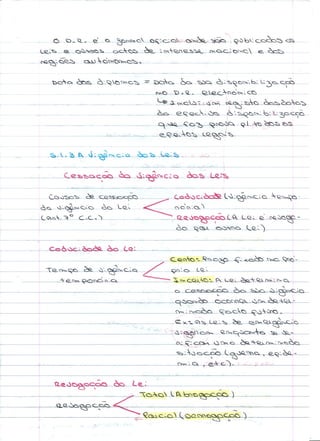 O D.R. é o jornal oficial onde são publicados as
leis e outros actos de interesse nacional e das
regiões autónomas.
Data dos diplomas = Data da sua disponibilização
no D.R. electrónico
Inclui: um registo das datas
da efectiva disponibilização
que faz prova p/ todos os
efeitos legais.
5.1.3 A vigência das leis
Cessação da vigência das leis
Causas de cessação
da vigência da lei
(art. 7º C.C.)
Caducidade (vigência tempo-
rária)
Revogação (A lei é revoga-
da por outra lei)
Caducidade da lei
Tempo de vigência
temporária
Certo: Prazo fixado na pró-
pria lei
Incerto: A lei determina
a cessação da sua vigência
quando ocorra um deter-
minado facto futuro.
Ex: As leis de emergência
vigoram enquanto se ve-
rificar uma determinada
situação (guerra, epide-
mia, etc).
Revogação da lei
Revogação
Total (Abrogação)
Parcial (Derrogação)